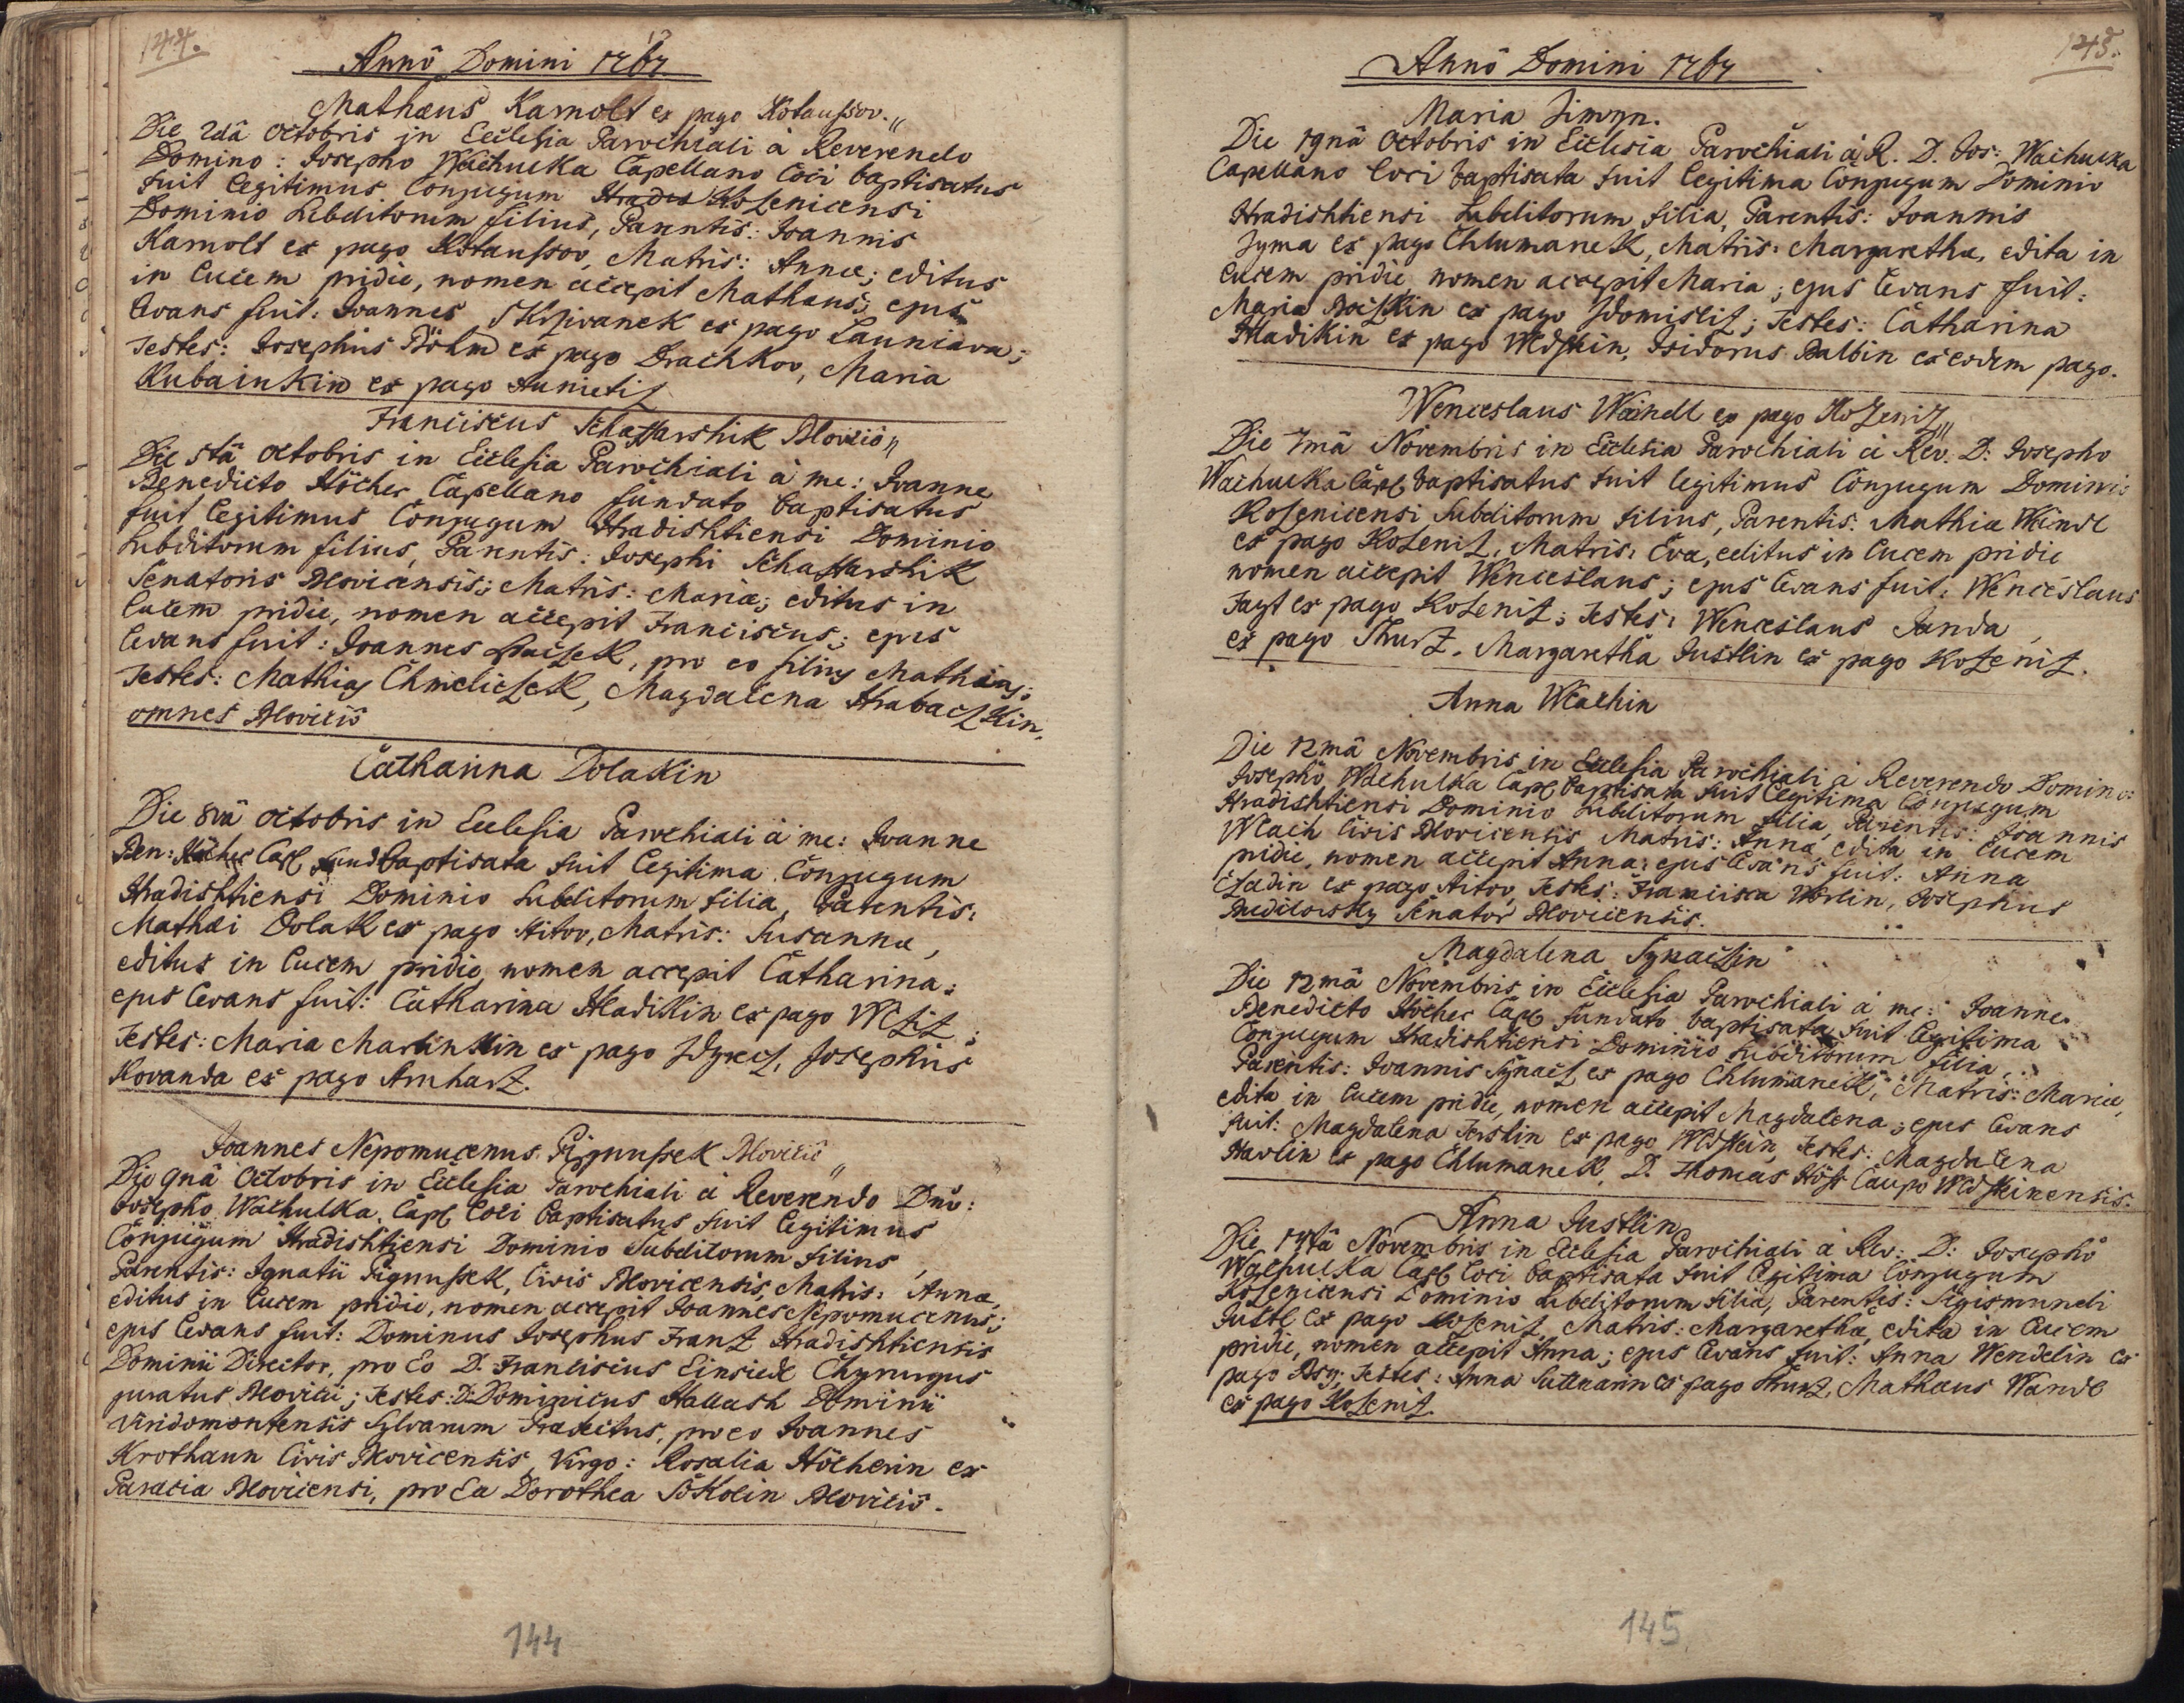 144.
Annô Domini 1767
Mathæus Karnolt ex pago Kotaussov.
Die 2dâ Octobris in Ecclesia Parochiali à Reverendo
Domino: Josepho Wachulka Capellano Loci baptisatus
fuit legitimus Conjugum Kozenicensi
Dominio Subditorum filius, Parentis: Joannis
Karnolt ex pago Kotaussov, Matris: Annæ; editus
in lucem pridie, nomen accepit Mathæus; ejus
levans fuit: Joannes Skrziwanek ex pago Launiova;
Testes: Josephus Böhm ex pago Drachkov, Maria
Kubainkin ex pago Aunietiz
Franciscus Schaffarshik Blovicio
Die 5tâ Octobris in Ecclesia Parochiali à me: Joanne
Benedicto Höcher Capellano fundato baptisatus
fuit legitimus Conjugum Hradishtiensi Dominio
Subditorum filius, Parentis: Josephi Schaffarshik
Senatoris Blovicensis; Matris: Mariæ; editus in
lucem pridie, nomen accepit Franciscus; ejus
levans fuit: Joannes , pro eo filius Mathias;
Testes: Mathias Chmeliczek, Magdalena Hrabaczkin.
omnes Blovicio
Catharina Dolakin
Die 8vâ Octobris in Ecclesia Parochiali à me: Joanne
Ben: Höcher Cap: fund baptisata fuit legitima Conjugum
Hradishtiensi Dominio Subditorum filia, Parentis:
Mathæi Dolak ex pago Aitov, Matris: Susannæ,
editus in lucem pridie, nomen accepit Catharina;
ejus levans fuit: Catharina Hladikin ex pago Wlziz;
Testes: Maria Martinkin ex pago Zdyrcz, Josephus
Kovanda ex pago Struharz.
Joannes Nepomucenus Pignussek Blovicio
Die 9nâ Octobris in Ecclesia Parochiali à Reverendo Dnô:
Josepho Wachulka Cap: Loci baptisatus fuit legitimus
Conjugum Hradishtiensi Dominio Subditorum filius,
Parentis: Ignatii Pignussek, Civis Blovicensis, Matris: Annæ,
editus in lucem pridie, nomen accepit Joannes Nepomucenus;
ejus levans fuit: Dominus Josephus Franz Hradishtiensis
Dominii Director, pro Eo D. Franciscus Einsiedl Chyrurgus
juratus Blovicii; Testes: D: Dominicus Hallash Dominii
Viridomontensis Sylvarum Præfectus, pro eo Joannes
Krothaun Civis Blovicensis, Virgo: Rosalia Höcherin ex
Paraecia Blovicensi, pro Ea Dorothea Sokolin Blovicio.
144
145.
Annô Domini 1767
Maria Zimyn.
Die 19nâ Octobris in Ecclesia Parochiali à R. D. Jos: Wachulka
Capellano Loci baptisata fuit legitima Conjugum Dominio
Hradishtiensi Subditorum filia, Parentis: Joannis
Zyma ex pago Chlumanek, Matris: Margarethæ, edita in
lucem pridie, nomen accepit Maria; ejus levans fuit:
Maria ex pago Zdomisliz; Testes: Catharina
Hladikin ex pago Wldshin, Isidorus Balbin ex eodem pago.
Wenceslaus Weindl ex pago Kozeniz
Die 7mâ Novembris in Ecclesia Parochiali à Rev. D: Josepho
Wachulka Cap: baptisatus fuit legitimus Conjugum Dominio
Kozenicensi Subditorum filius, Parentis: Mathiæ Weindl
ex pago Kozeniz, Matris: Eva, editus in lucem pridie
nomen accepit Wenceslaus; ejus levans fuit: Wenceslaus
Jagt ex pago Kozeniz; Testes: Wenceslaus Janda,
ex pago Thurz. Margaretha Justlin ex pago Kozeniz.
Anna Wlachin
Die 12mâ Novembris in Ecclesia Parochiali à Reverendo Domino:
Josephô Wachulka Cap: baptisata fuit legitima Conjugum
Hradishtiensi Dominio Subditorum filia, Parentis: Joannis
Wlach Civis Blovicensis Matris: Anna, edita in lucem
pridie, nomen accepit Anna; ejus levans fuit: Anna
Czadin ex pago Aitov, Testes: Francisca Worlin, Josephus
Senator Blovicensis.
Magdalena Synaczin
Die 12mâ Novembris in Ecclesia Parochiali à me: Joanne
Benedicto Höcher Cap: fundato baptisata fuit legitima
Conjugum Hradishtiensi Dominio Subditorum filia,
Parentis: Joannis Synacz ex pago Chlumanek, Matris: Mariæ,
edita in lucem pridie, nomen accepit Magdalena; ejus levans
fuit: Magdalena Ferstlin ex pago Wldshin, Testes: Magdalena
Havlin ex pago Chlumanek, D. Thomas Höss Caupo Wldshinensis.
Anna Justlin
Die 14tâ Novembris in Ecclesia Parochiali à Rev: D: Josephô
Wachulka Cap: Loci baptisata fuit legitima Conjugum
Kozenicensi Dominio Subditorum filia, Parentis: Sigismundi
Justl ex pago Kozeniz, Matris: Margaretha, edita in lucem
pridie, nomen accepit Anna; ejus levans fuit: Anna Wendelin ex
pago Testes: Anna Sullmanin ex pago Thurz, Mathæus Wandl
ex pago Kozeniz.
145